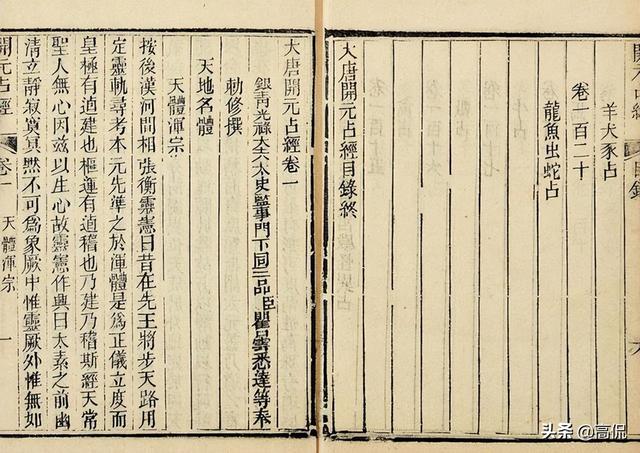 開元占經
目錄
六
羊犬豕占
卷一百二十
龍魚虫蛇占
大唐開元占經目錄終
大唐開元占經卷一
銀青光祿大夫太史監事門下同三品臣瞿曇悉達等奉
勅修撰
天地名體
天體渾宗
按後漢河間相張衡靈憲曰昔在先王將步天路用
定靈軌尋考本元先準之於渾體是爲正儀立度而
皇極有逌建也樞運有逌稽也乃建乃稽斯經天常
聖人無心因兹以生心故靈憲作興曰太素之前幽
清立靜寂寞冥黙不可爲象厥中惟靈厥外惟無如
開元占經
卷一
天體渾宗
一
头条 @高侃